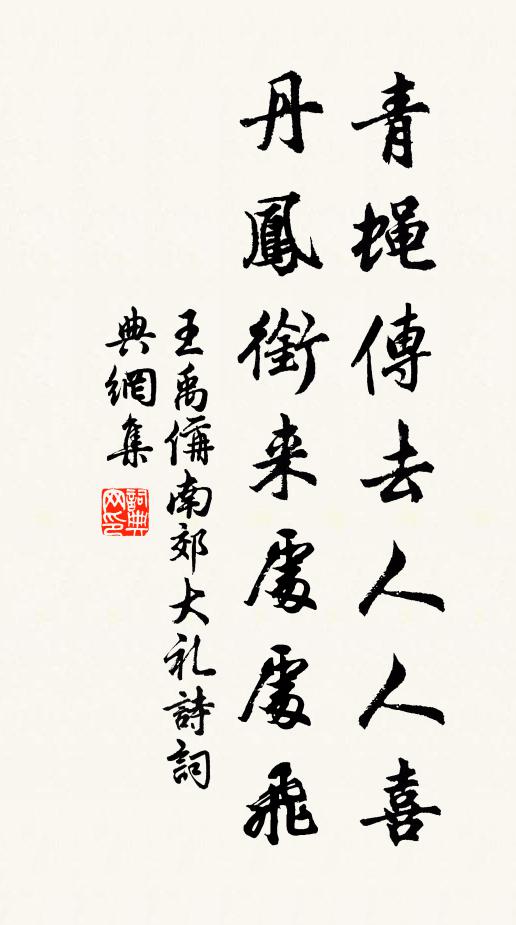 青蝇傳去人人喜
丹鳳銜来處處飛
王禹偁南郊大礼詩詞
典網集
詞典
网印